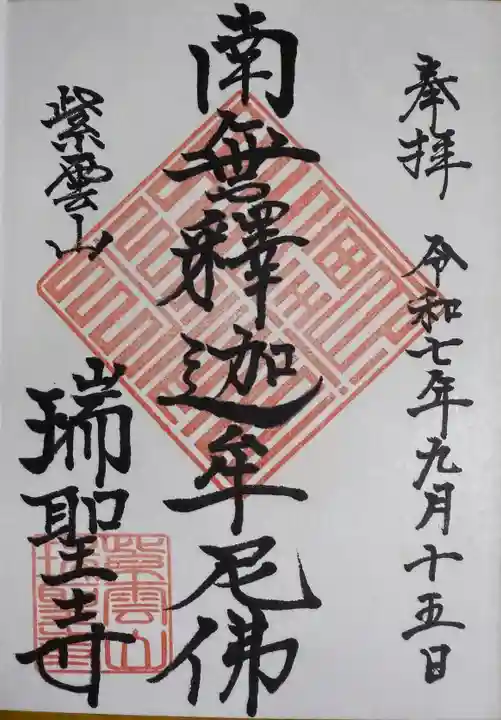 奉拝 令和七年九月十五日
南無釋迦牟尼佛
紫雲山
瑞聖寺
紫雲山
瑞聖寺